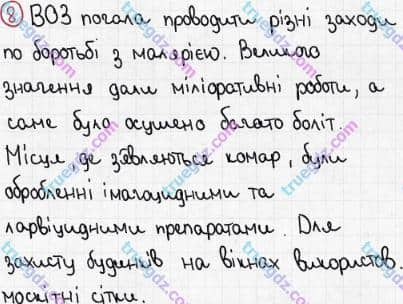 8 ВОЗ почала проводити різні заходи
по боротьбі з малярією. Великого
значення дали міліоративні роботи, а
саме було осушено багато боліт.
Місця, де зʼявляються комар, були
обробленні імагоцидними та
ларвіцидними препаратами. Для
захисту будинків на вікнах використов.
москітні сітки.